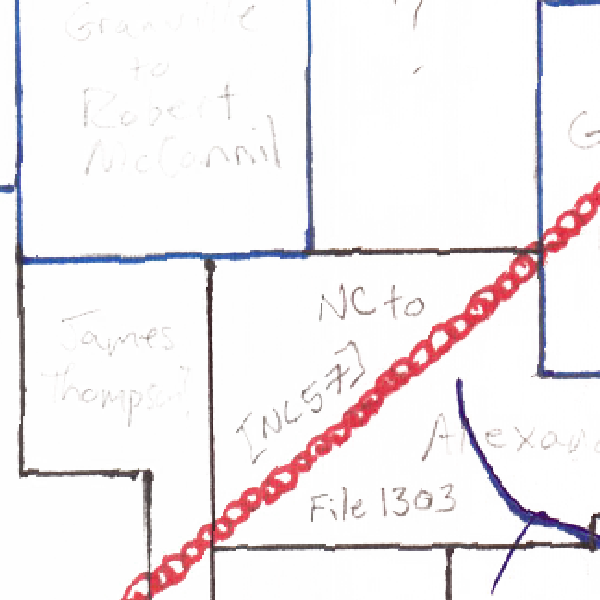 Granville
to
Robert
McConnil
?
G
James
Thompson
NC to
[NC57]
File 1303